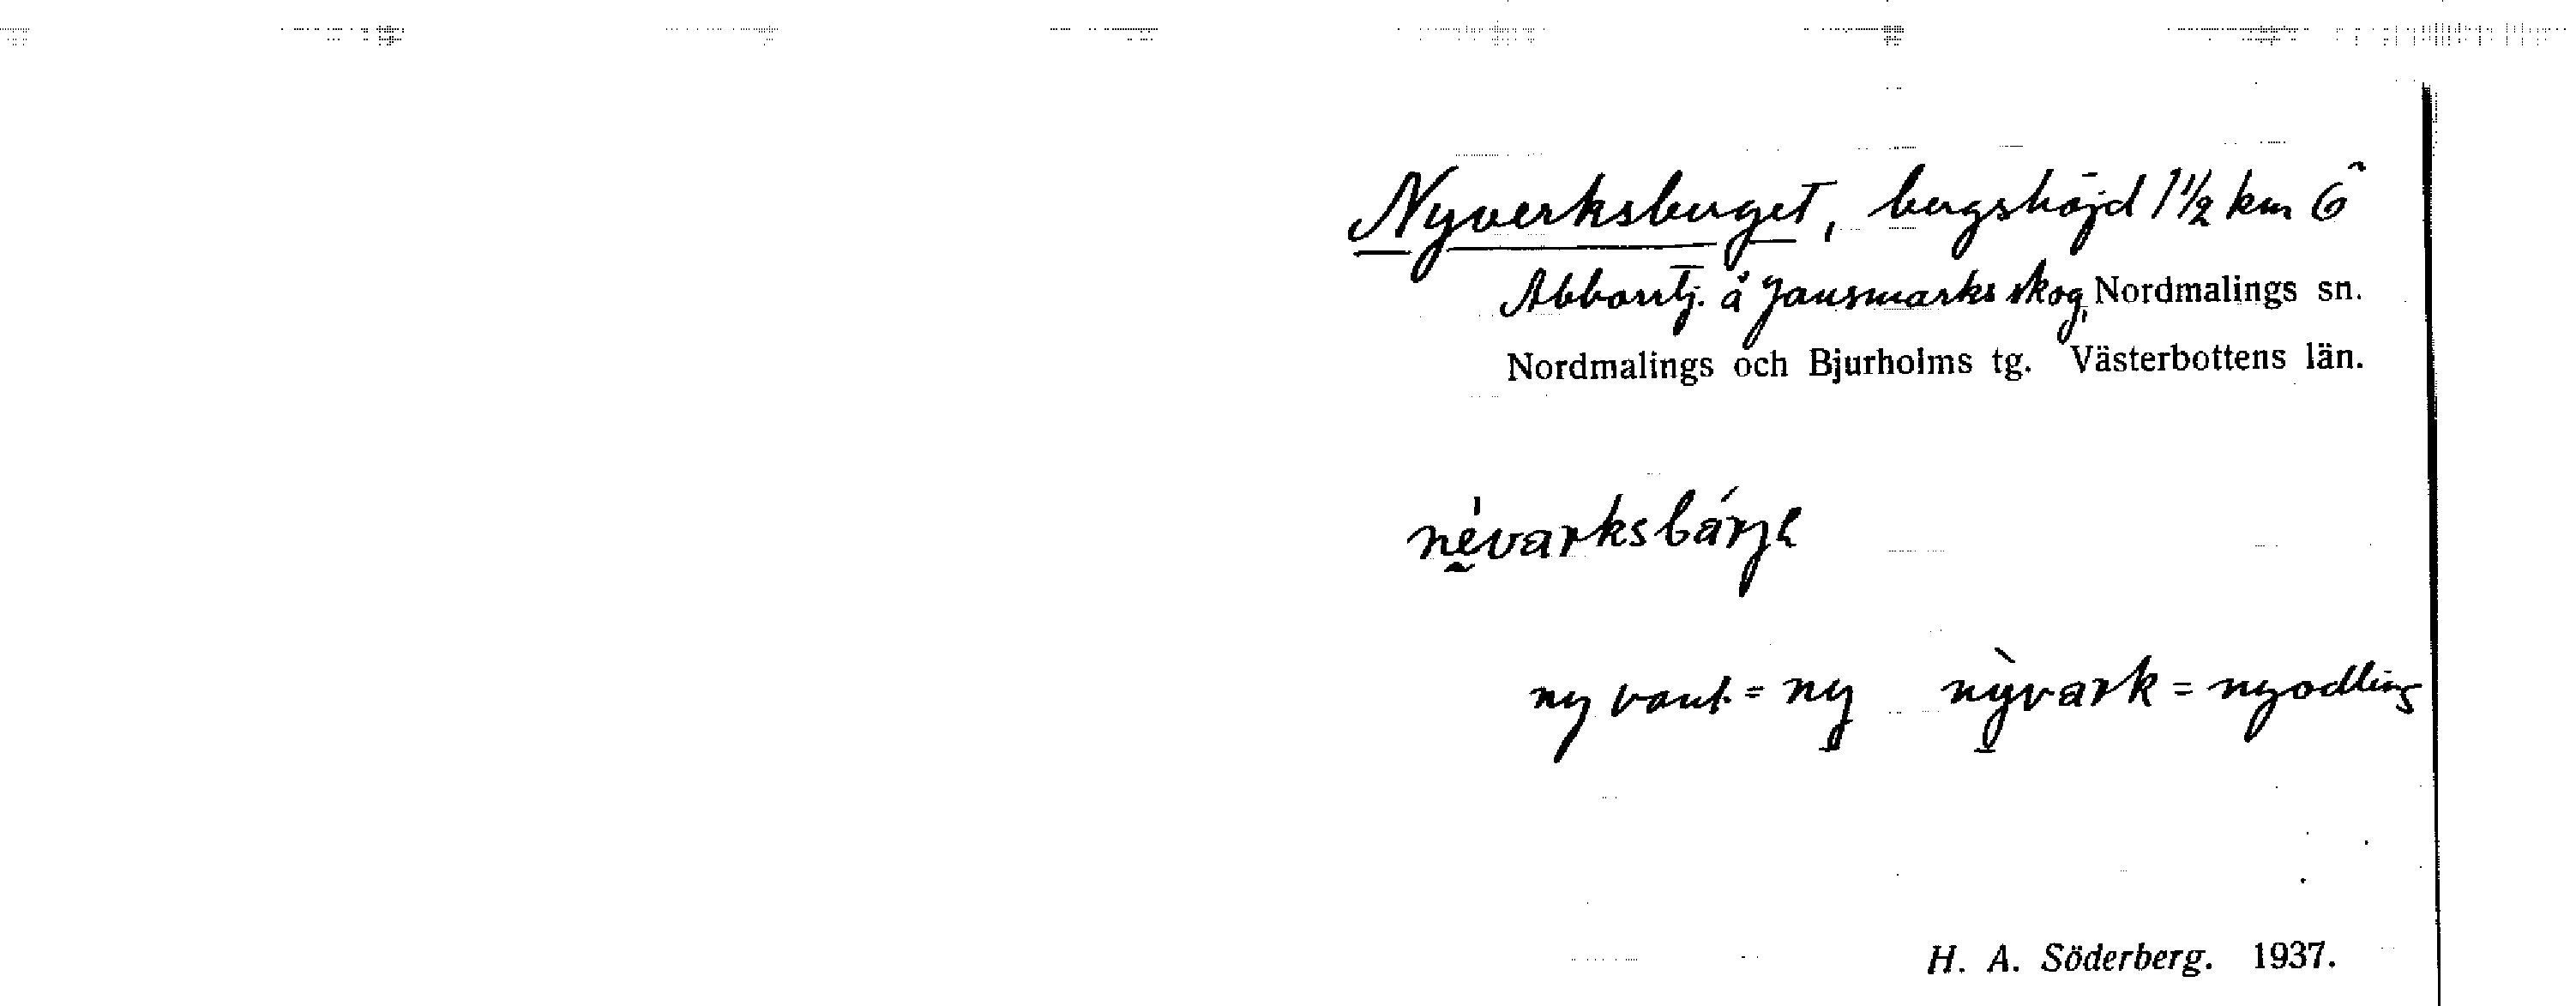 Nyverksberget, bergshöjd 1½ km Ö
Abborrtj. å Jansmarks skog, Nordmalings sn.
Nordmalings och Bjurholms tg. Västerbottens län.
névarksbárje
ny vant. = ny nỳvark = nyodling
H. A. Söderberg. 1937.